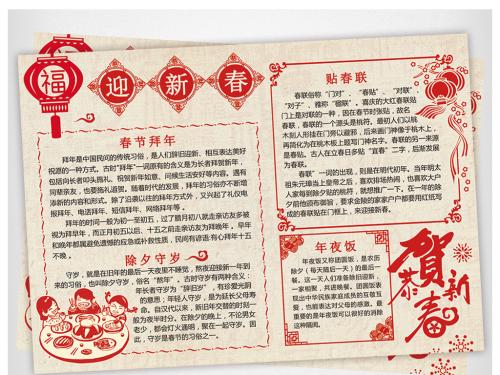 福
迎新春
春节拜年
拜年是中国民间的传统习俗，是人们辞旧迎新、相互表达美好
祝愿的一种方式。古时“拜年”一词原有的含义是为长者拜贺新年，
包括向长者叩头施礼、祝贺新年如意、问候生活安好等内容。遇有
同辈亲友，也要施礼道贺。随着时代的发展，拜年的习俗亦不断增
添新的内容和形式。除了沿袭以往的拜年方式外，又兴起了礼仪电
报拜年、电话拜年、短信拜年、网络拜年等。
拜年的时间一般为初一至初五，过了腊月初八就走亲访友多被
视为拜早年，而正月初五以后、十五之前走亲访友为拜晚年。早年
和晚年都属避免遗憾的应急或补救性质，民间有谚语:有心拜年十五
不晚。
除夕守岁
守岁，就是在旧年的最后一天夜里不睡觉，熬夜迎接新一年到
来的习俗，也叫除夕守岁，俗名“熬年”。古时守岁有两种含义：
年长者守岁为“辞旧岁”，有珍爱光阴
的意思；年轻人守岁，是为延长父母寿
命。自汉代以来，新旧年交替的时刻一
般为夜半时分。在除夕的晚上，不论男女
老少，都会灯火通明，聚在一起守岁。因
此，守岁是春节的习俗之一。
贴春联
春联俗称“门对”、“春贴”、“对联”、
“对子”，雅称“楹联”。喜庆的大红春联贴
门上是对联的一种，因在春节时张贴，故名
春联，春联的一个源头是桃符。最初人们以桃
木刻人形挂在门旁以避邪，后来画门神像于桃木上，
再简化为在桃木板上题写门神名字。春联的另一来源
是春贴。古人在立春日多贴“宜春”二字，后渐发展
为春联。
“春联”一词的出现，则是在明代初年。当年明太
祖朱元璋当上皇帝之后，喜欢排场热闹，也喜欢大户
人家每到除夕贴的桃符，就想推广一下。在一年的除
夕前他颁布御旨，要求金陵的家家户户都要用红纸写
成的春联贴在门框上，来迎接新春。
年夜饭
年夜饭又称团圆饭，是农历
除夕（每年随后一天）的最后一
餐。这一天人们准备除旧迎新，
一家相聚，共进晚餐。团圆饭表
现出中华民族家庭成员的互敬互
爱，也能表达对父母的感激。最
重要的是年夜饭可以很好的消除
这种隔阂。
恭贺新春